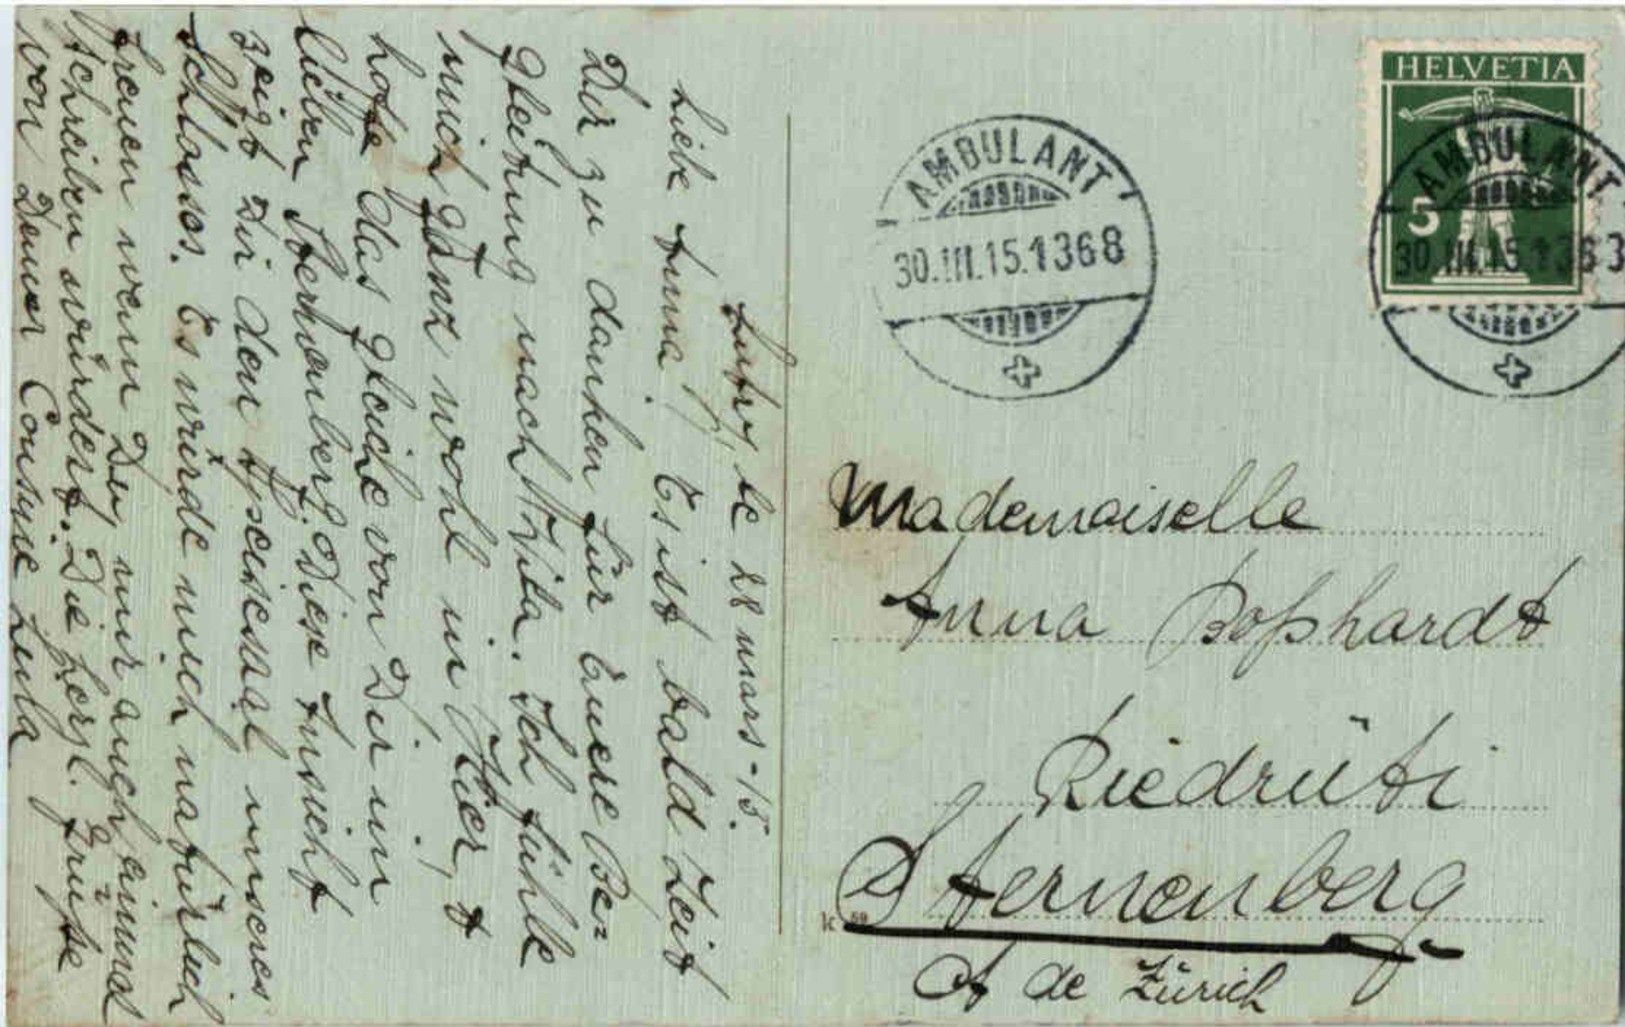 Lutry, le 28 mars - 15.
Liebe Anna! Es ist bald Zeit
Dir zu danken für Euere Be=
gleitung nach Wila. Ich fühle
mich ganz wohl in Hier, &
hoffe das gleiche von Dir im
lieben Sternenberg. Diese Ansicht
zeigt Dir den Speisesaal unseres
Schlosses. Es würde mich natürlich
freuen wenn Du mir auch einmal
schreiben würdest. Die herzl. Grüsse
von Deiner Cousine Lula
HELVETIA
5
AMBULANT
30.III.15.1368
AMBULANT
30.III.15.1363
Mademoiselle
Anna Boßhardt
Riedrüti
Sternenberg
k 59
Ct de Zürich